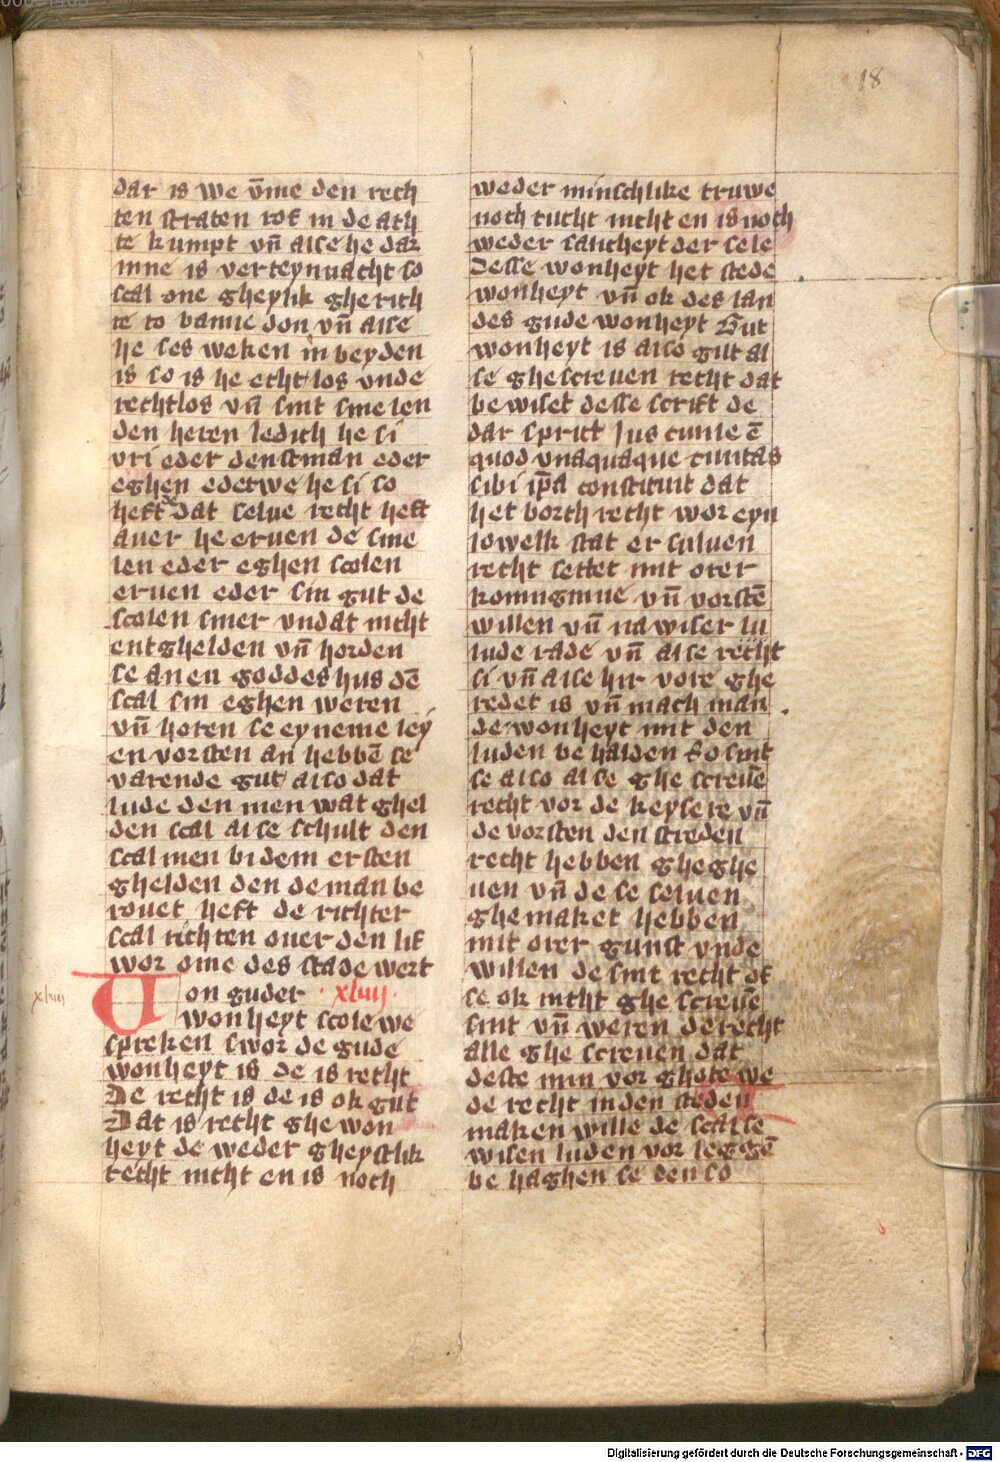 18
dar is we v̄me den rech
ten straten rof in de ach
te kumpt vn̄ alse he dar
inne is verteynnacht so
scal one gheylik gherich
te to banne don vn̄ alse
he ses weken in beyden
is so is he echt los vnde
rechtlos vn̄ sint sine len
den heren ledich he si
vri eder denstman eder
eghen ederwe he si so
heft dat selue recht heft
auer he eruen de sine
len eder eghen scolen
eruen eder sin gut de
scolen siner vndat nicht
entghelden vn̄ horden
se an en goddeshus dē
scal sin eghen weren
vn̄ horen se eyneme ley
en vorsten an hebbē se
varende gut also dat
lude den men wat ghel
den scal alse schult den
scal men bi dem ersten
ghelden den de man be
rouet heft de richter
scal richten ouer den lif
wor ome des stade wert
Von guder xliiij
wonheyt scole we
spreken swor de gude
wonheyt is de is recht
De recht is de is ok gut
Dat is recht ghe won
heyt de weder gheystlik
recht nicht en is noch
xliiij
weder minschlike truwe
noch tucht nicht en is noch
weder salicheyt der sele
Desse wonheyt het stede
wonheyt vn̄ ok des lan
des gude wonheyt Gut
wonheyt is also gut al
se ghescreuen recht dat
bewiset desse scrift de
dar sprict Jus ciuile ē
quod vnaquaque ciuitas
sibi ip̄a constituit dat
het borch recht wor eyn
iowelk stat er suluen
recht settet mit orer
konniginne vn̄ vorstē
willen vn̄ na wiser lu
lude rade vn̄ alse recht
si vn̄ alse hir vore ghe
redet is vn̄ mach man
de wonheyt mit den
luden be halden So sint
se also alse ghe screuē
recht vor de keysere vn̄
de vorsten den steden
recht hebben gheghe
uen vn̄ de se seluen
ghemaket hebben
mit orer gunst vnde
willen de sint recht of
se ok nicht ghe screuē
sint vn̄ weren de recht
alle ghe screuen dat
deste min vor ghote we
de recht in den steden
maken wille de scal se
wisen luden vor leggē
be haghen se den so
Digitalisierung gefördert durch die Deutsche Forschungsgemeinschaft - DFG